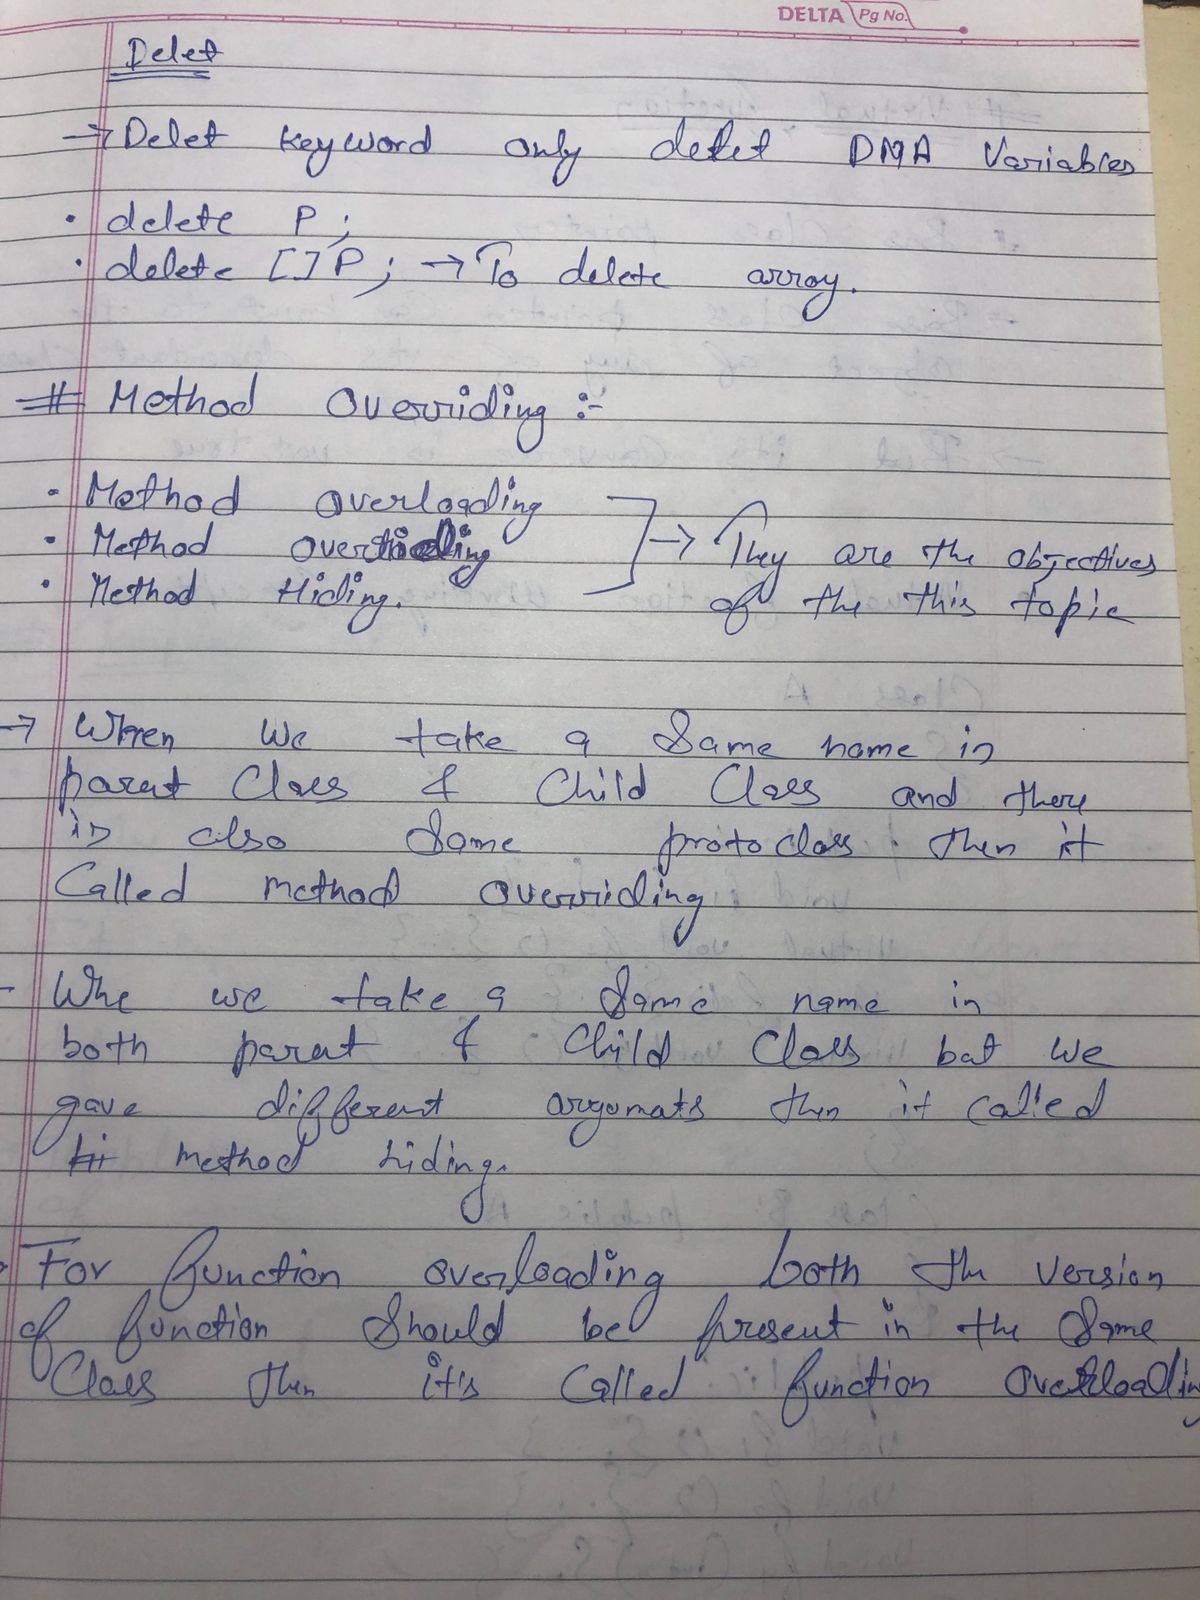 DELTA Pg No.
Delet
→ Delet keyword only delet DMA Variables
• delete P;
• delete []P; → To delete array.
# Method Overriding :-
• Method overloading
• Method overriding
• Method Hiding.
→ They are the objectives
of the this topic
→ When we take a Same name in
parent Class & Child Class and there
is also Same proto class then it
Called method overriding
- Whe we take a Same name in
both parent & Child Class but we
gave different argumats then it called
hi method hiding.
• For function overloading both the version
of function Should be present in the Same
Class then it's Called function overloading